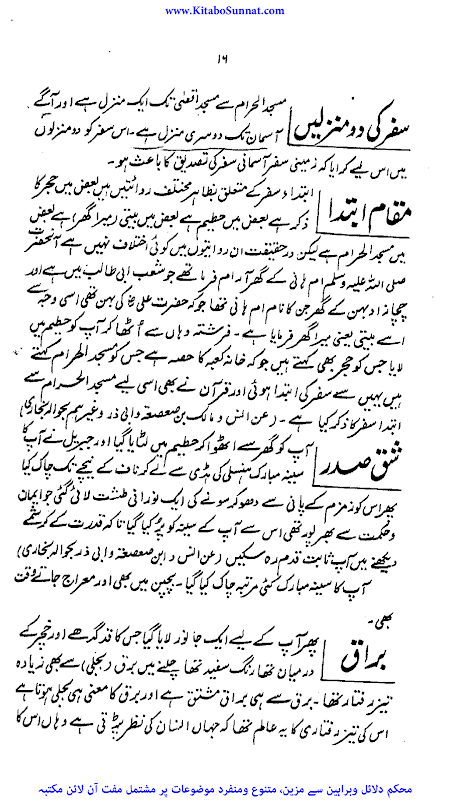 www.KitaboSunnat.com
۱۶
سفر کی دو منزلیں
مسجد الحرام سے مسجد اقصیٰ تک ایک منزل ہے اور آگے
آسمان تک دوسری منزل ہے۔ اس سفر کو دو منزلوں
میں اس لیے کرایا کہ زمینی سفر آسمانی سفر کی تصدیق کا باعث ہو۔
مقام ابتدا
ابتداء سفر کے متعلق بظاہر مختلف روائتیں ہیں بعض میں حجر کا
ذکر ہے بعض میں حطیم ہے بعض میں بیتی (میرا گھر) ہے بعض
میں مسجد الحرام ہے لیکن درحقیقت ان روائیوں میں کوئی اختلاف نہیں ہے آنحضرت
صلی اللہ علیہ وسلم ام ہانی کے گھر آرام فرما تھے جو شعب ابی طالب میں ہے اور
چچا زاد بہن کے گھر جن کا نام ام ہانی تھا جو کہ حضرت علیؓ کی بہن تھی اسی وجہ سے
اسے بیتی یعنی میرا گھر فرمایا ہے۔ فرشتہ وہاں سے اُٹھا کر آپ کو حطیم میں
لایا جس کو حجر بھی کہتے ہیں جو کہ خانہ کعبہ کا حصہ ہے جس کو مسجد الحرام کہتے
ہیں یہیں سے سفر کی ابتدا ہوئی اور قرآن نے بھی اسی لیے مسجد الحرام سے
ابتدا سفر کا ذکر کیا ہے۔ (عن انس و مالک بن صعصعۃ وابی ذر وغیرہم بحوالہ بخاری)
شق صدر
آپ کو گھر سے اٹھوا کر حطیم میں لٹایا گیا اور جبریل نے آپ کا
سینہ مبارک ہنسلی کی ہڈی سے لے کر ناف کے نیچے تک چاک کیا
پھر اس کو زمزم کے پانی سے دھو کر سونے کی ایک نورانی طشت لائی گئی جو ایمان
وحکمت سے بھرپور تھی اس سے آپ کے سینہ کو پُر کیا گیا تاکہ قدرت کے کرشمے
دیکھنے میں آپ ثابت قدم رہ سکیں (عن انس و ابن صعصعۃ وابی ذر بحوالہ بخاری)
آپ کا سینہ مبارک کئی مرتبہ چاک کیا گیا۔ بچپن میں بھی اور معراج جاتے وقت
بھی۔
براق
پھر آپ کے لیے ایک جانور لایا گیا جس کا قد گدھے اور خچر کے
درمیان تھا رنگ سفید تھا چلنے میں برق (بجلی) سے بھی زیادہ
تیز رفتار تھا۔ برق سے ہی براق مشتق ہے اور برق کا معنی ہی بجلی ہوتا ہے
اس کی تیز رفتاری کا یہ عالم تھا کہ جہاں انسان کی نظر پڑتی ہے وہاں اس کا
محکم دلائل وبراہین سے مزین، متنوع ومنفرد موضوعات پر مشتمل مفت آن لائن مکتبہ